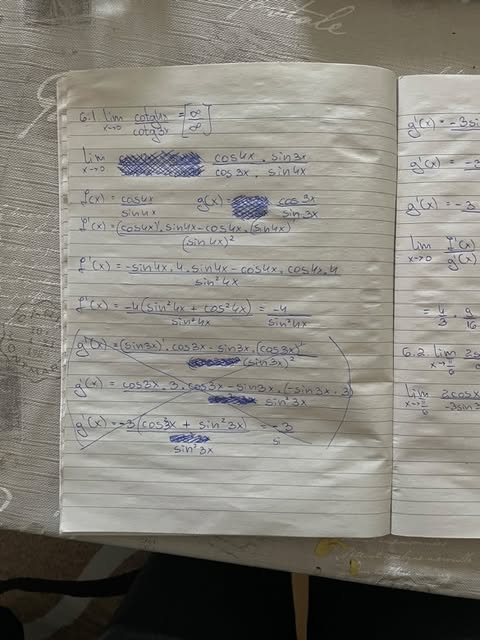 6.1 lim x→0 cotg4x / cotg3x = [∞/∞]
lim x→0 cos4x . sin3x / cos3x . sin4x
f(x) = cos4x / sin4x g(x) = cos3x / sin3x
f'(x) = (cos4x)' . sin4x - cos4x . (sin4x)' / (sin4x)²
f'(x) = -sin4x . 4 . sin4x - cos4x . cos4x . 4 / sin²4x
f'(x) = -4(sin²4x + cos²4x) / sin²4x = -4 / sin²4x
g'(x) = (sin3x)' . cos3x - sin3x . (cos3x)' / (sin3x)²
g'(x) = cos3x . 3 . cos3x - sin3x . (-sin3x . 3) / sin²3x
g'(x) = -3(cos²3x + sin²3x) / sin²3x = -3 / si
g'(x) = -3sin
g'(x) = -3
g'(x) = -3
lim x→0 f'(x) / g'(x)
= 4/3 . 9/16
6.2 lim x→π/6 2s
lim x→π/6 2cosx / -3sin3